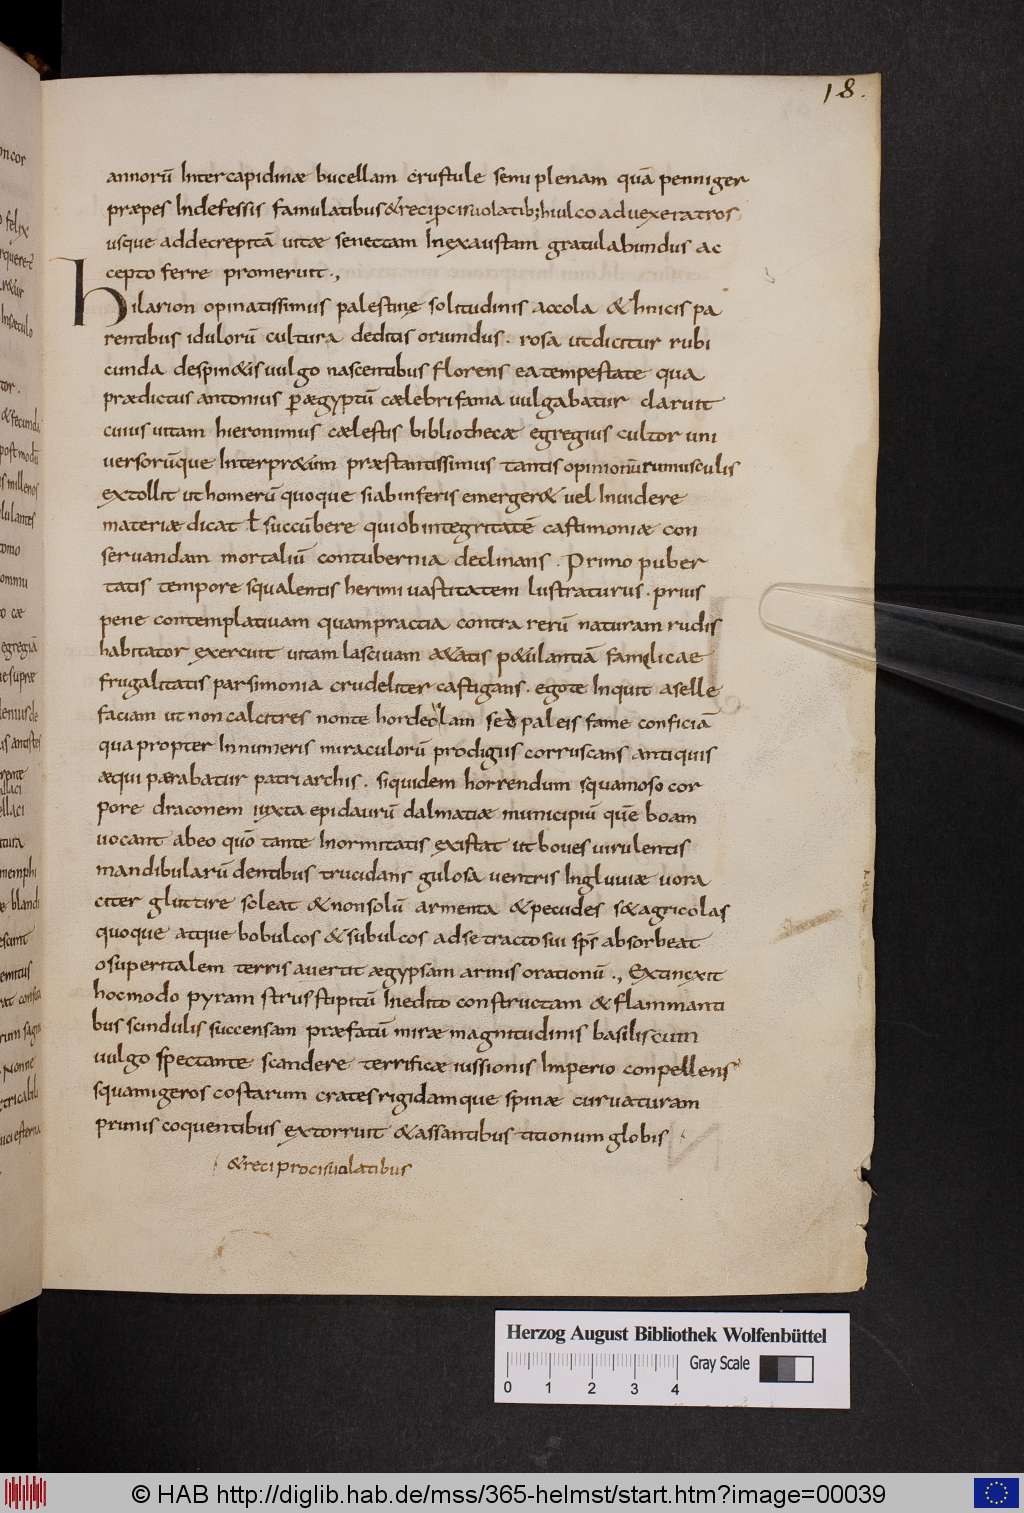 18.
annorū Intercapidinæ bucellam crustule semiplenam quā penniger
præpes Indefessis famulatibus &recipcisuolatib; hiulco aduexerat ros
usque addecrepitā uitæ senectam Inexaustam gratulabundus ac
cepto ferre promeruit.,
hilarion opinatissimus palestinę solitudinis accola & hnicis pa
rentibus idulorū cultura deditis oriundus. rosa utdicitur rubi
cunda despin&is uulgo nascentibus florens ea tempestate qua
prædictus antonius p ægyptū cælebri fama uulgabatur claruit
cuius uitam hieronimus cælestis bibliothecæ egregius cultor uni
uersorūque Interpr&um præstantissimus tantis opinionū rumusculis
extollit ut homerū quoque si ab inferis emerger& uel Inuidere
materiæ dicat ł succūbere qui ob integritatē castimoniæ con
seruandam mortaliū contubernia declinans. Primo puber
tatis tempore squalentis herimi uastitatem lustraturus. prius
pene contemplatiuam quam practia contra rerū naturam rudis
habitator exercuit uitam lasciuam a&atis p&ulantiā famelicae
frugalitatis parsimonia crudeliter castigans. ego te Inquit aselle
faciam ut non calcitres non te hordeolam sed paleis fame conficiā
qua propter Innumeris miraculorū prodigiis corruscans antiquis
æqui pærabatur patriarchis. siquidem horrendum squamoso cor
pore draconem iuxta epidaurū dalmatiæ municipiū quē boam
uocant abeo quō tante Inormitatis existat ut boues uirulentis
mandibularū dentibus trucidans gulosa uentris Ingluuiæ uora
citer gluttire soleat & non solū armenta & pecudes s& agricolas
quoque atque bobulcos & subulcos ad se tracto sui sps absorbeat
osuperitalem terris auertit ægypsam armis orationū., Extinxit
hoc modo pyram strus stipitū Inedito constructam & flammanti
bus scindulis succensam præfatū miræ magnitudinis basiliscum
uulgo spectante scandere terrificæ iussionis Imperio conpellens
squamigeros costarum crates rigidamque spinæ curuaturam
primis coquentibus extorruit & assantibus titionum globis
&reciprocisuolatibus
Herzog August Bibliothek Wolfenbüttel
Gray Scale
0 1 2 3 4
© HAB http://diglib.hab.de/mss/365-helmst/start.htm?image=00039